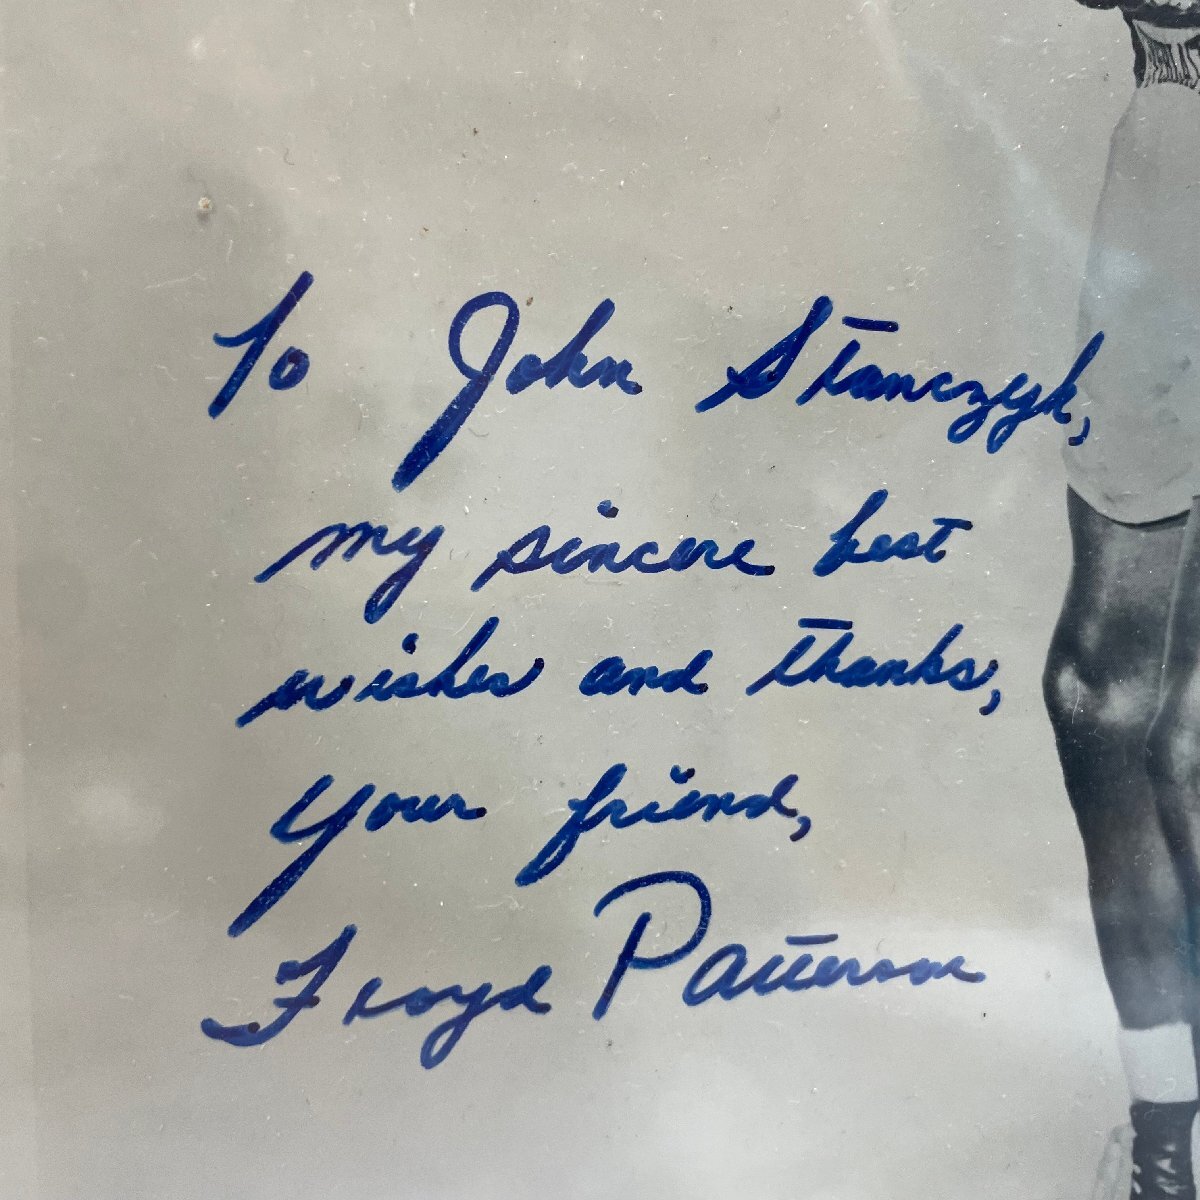 To John Stanczyk,
my sincere best
wishes and thanks,
Your friend,
Floyd Patterson